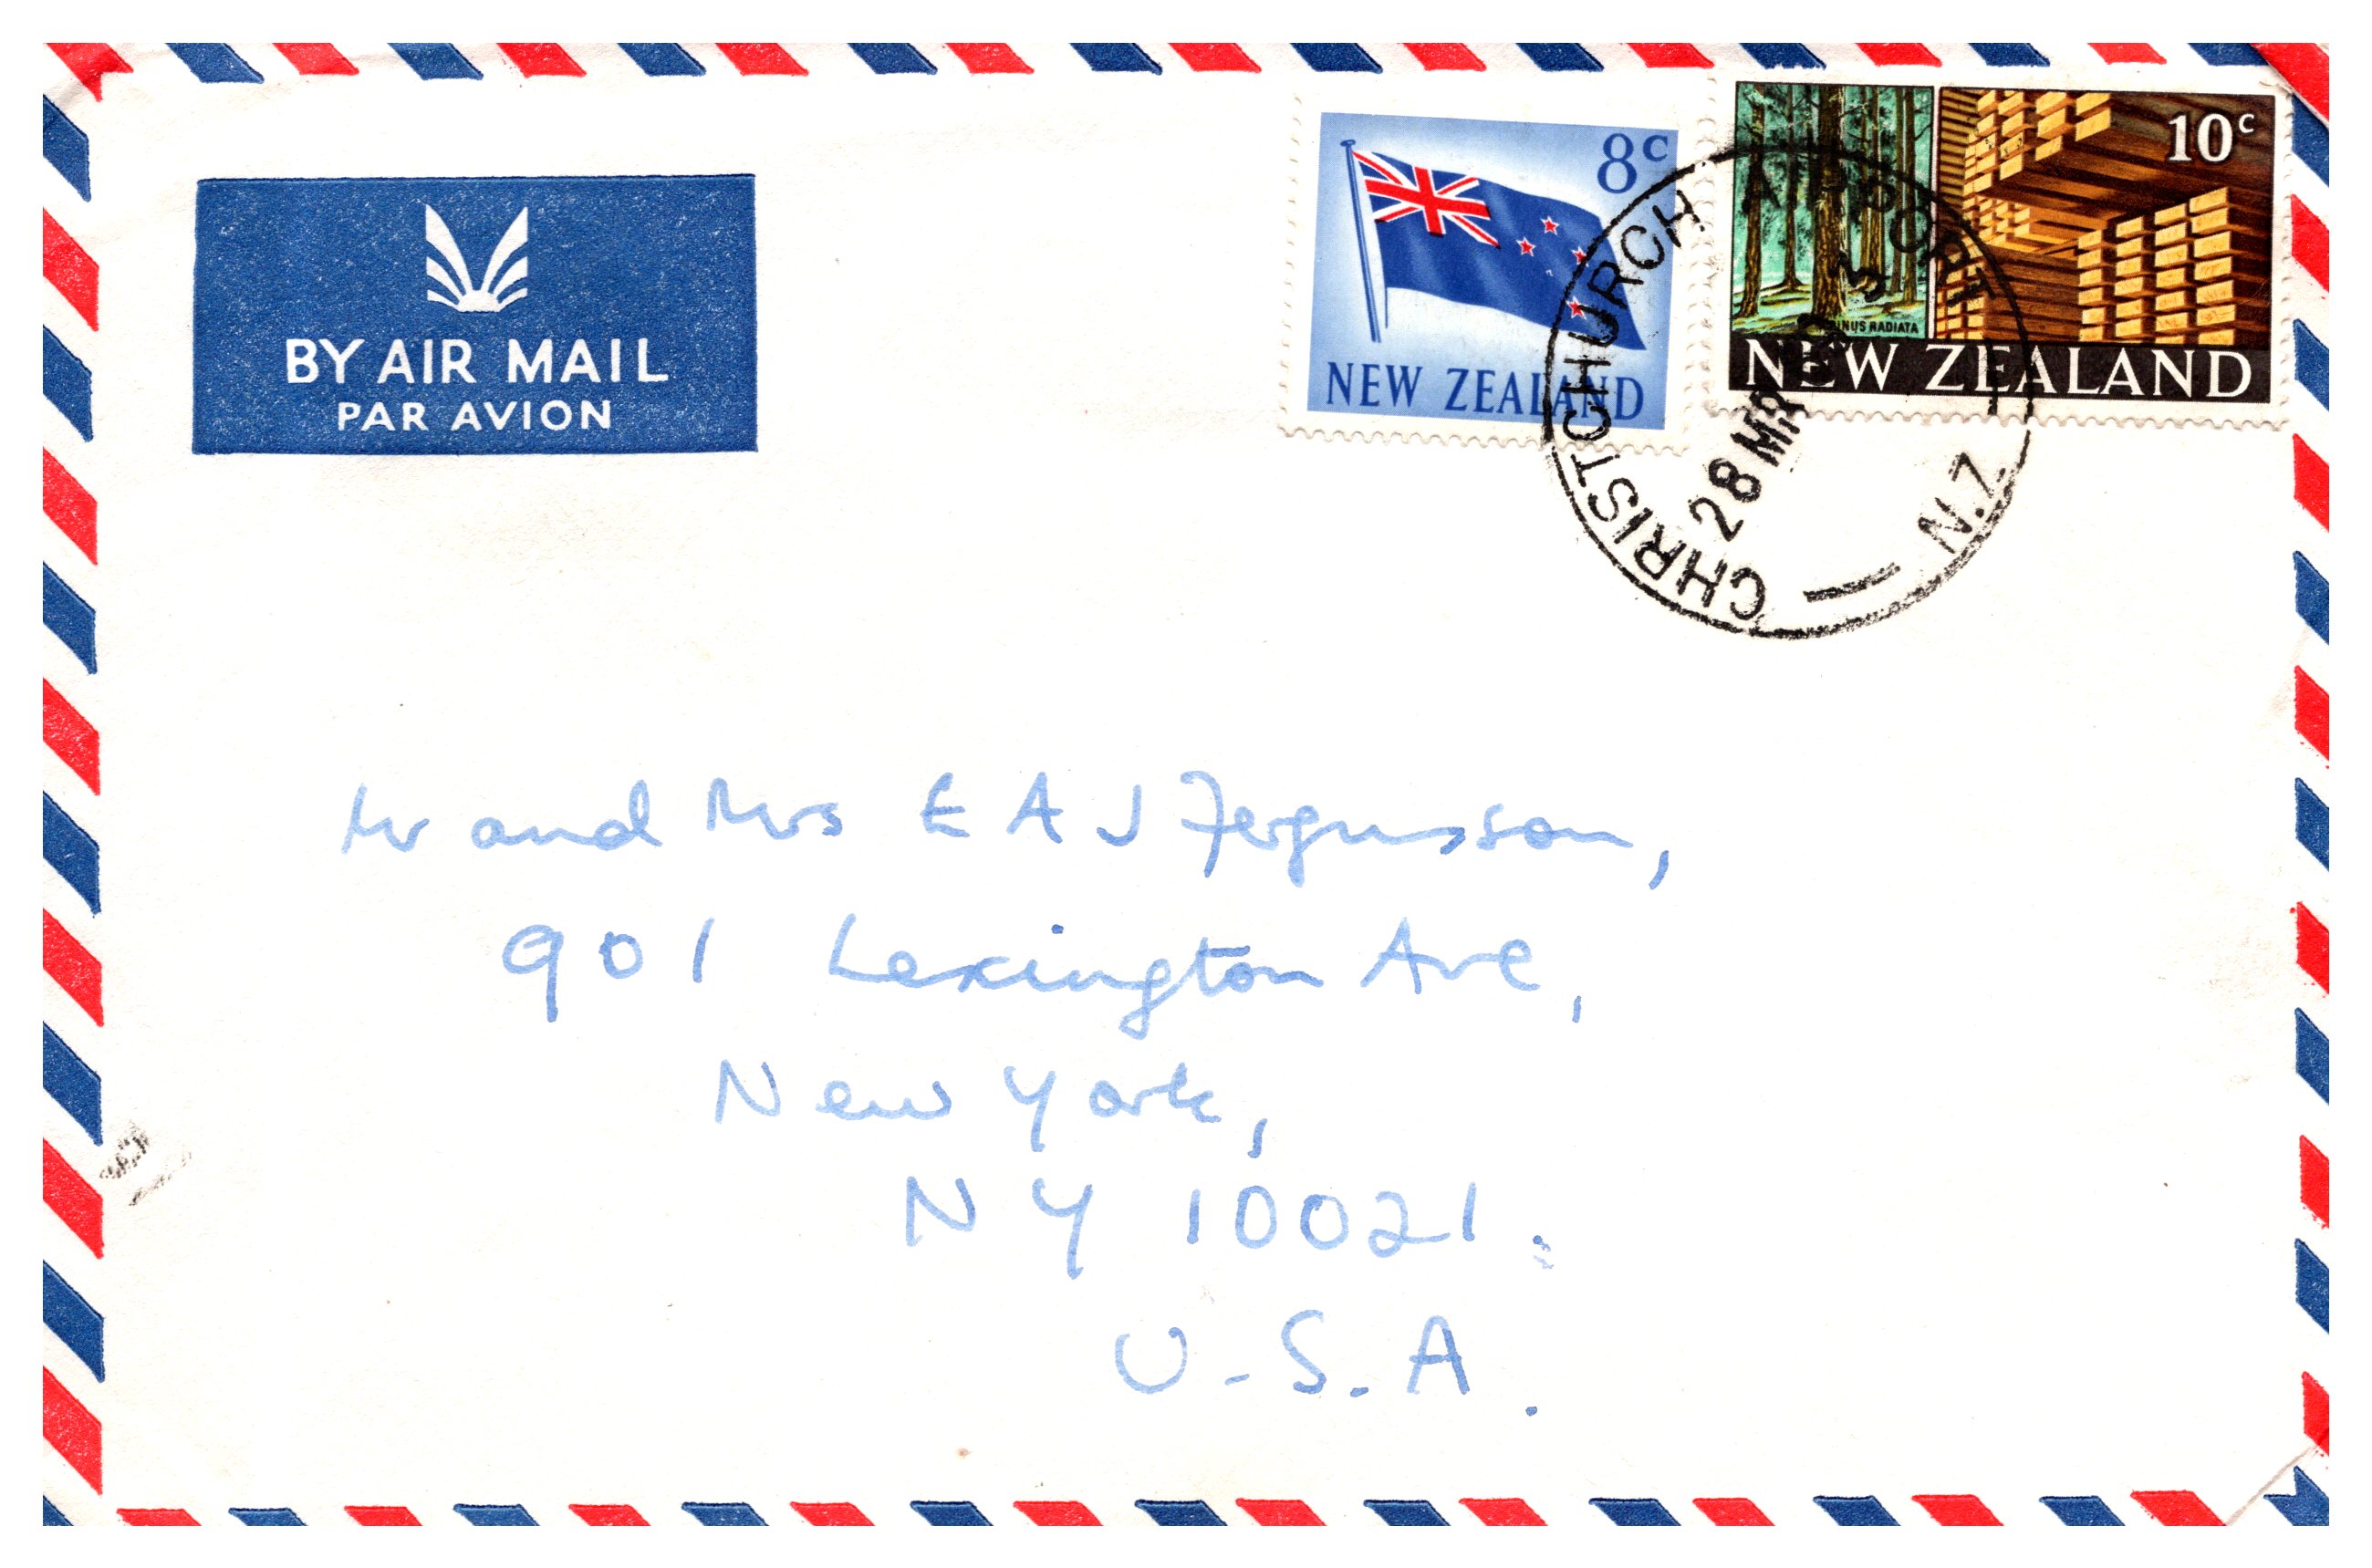 BY AIR MAIL
PAR AVION
8c
NEW ZEALAND
10c
PINUS RADIATA
NEW ZEALAND
CHRISTCHURCH AIRPORT
28 MR
N.Z.
Mr and Mrs E A J Fergusson,
901 Lexington Ave,
New York,
NY 10021.
U.S.A.